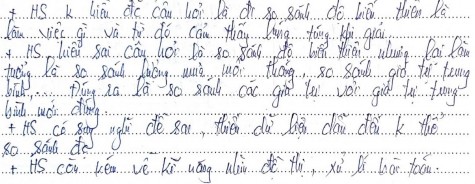 + HS k hiểu đề câu hỏi là đi so sánh độ biến thiên là
làm việc gì và từ đó cảm thấy lúng túng khi giải
+ HS hiểu sai câu hỏi là so sánh độ biến thiên nhưng lại lầm
tưởng là so sánh lượng mưa mỗi tháng, so sánh giá trị trung
bình,... Đúng ra là so sánh các giá trị với giá trị trung
bình mới đúng
+ HS có suy nghĩ đề sai, thiếu dữ kiện dẫn đến k thể
so sánh đc
+ HS còn kém về kĩ năng nhìn đồ thị, xử lí bài toán.